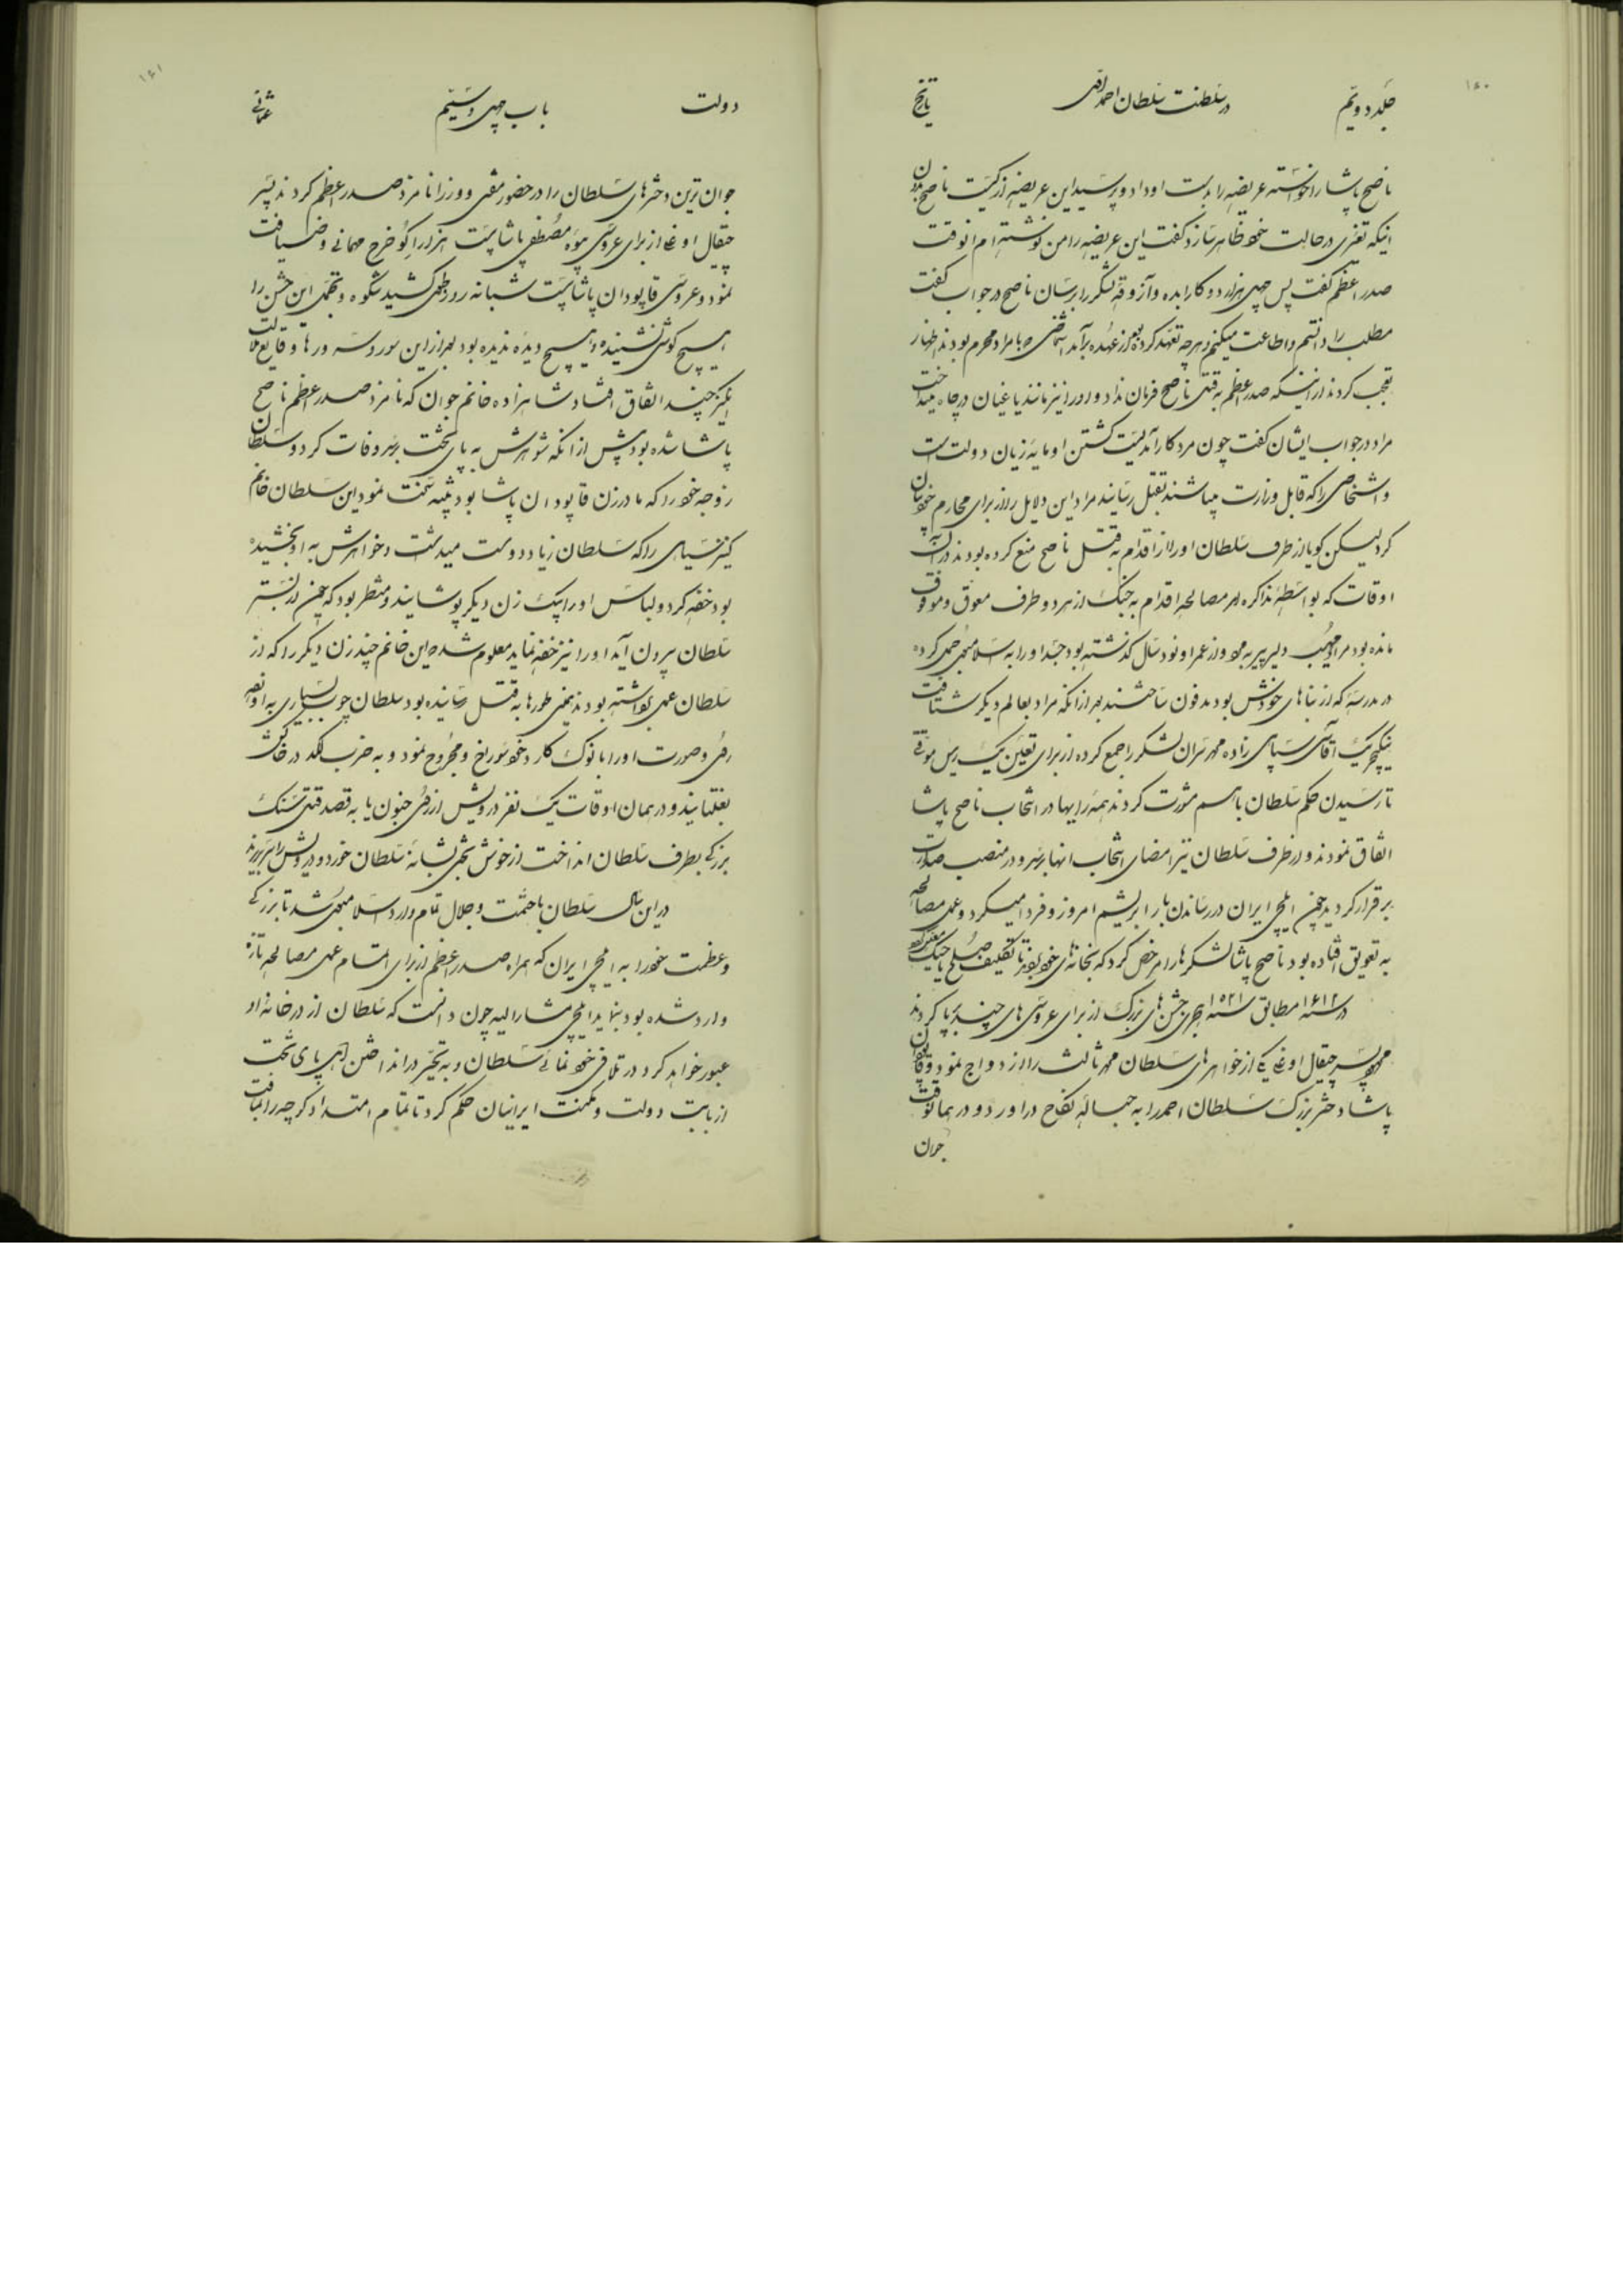 ۱۶۰
جلد دویم در سلطنت سلطان احمد اول تاریخ
ناصح پاشا را خواسته عریضه را بدست او داد و پرسید این عریضه از کیست ناصح بدون
اینکه تغییری در حالت خود ظاهر سازد گفت این عریضه را من نوشته ام انوقت
صدر اعظم گفت پس چهل هزار دوکا را بده و آزوقهٔ لشکر را برسان ناصح در جواب گفت
مطلب را دانستم و اطاعت میکنم و هرچه تعهد کرده بود از عهده برآمد اشخاصی که با مراد محرم بودند اظهار
تعجب کردند از اینکه صدر اعظم به قتل ناصح فرمان نداد و او را نیز مانند یاغیان در چاه نینداخت
مراد در جواب ایشان گفت چون مرد کارآمدیست کشتن او مایهٔ زیان دولت است
و اشخاصی را که قابل وزارت میباشند نباید بقتل رسانید مراد این دلایل را از برای محارم خود بیان
کرد لیکن گویا از طرف سلطان او را از اقدام به قتل ناصح منع کرده بودند در آن
اوقات که بواسطهٔ مذاکره امر مصالحه اقدام به جنگ از هر دو طرف معوق و موقوف
مانده بود مراد مهیب و لیر پیر بمرد و از عمر او نود سال گذشته بود جسد او را به اسلامبول حمل کرده
در مدرسهٔ که از بناهای خودش بود مدفون ساختند بعد از آنکه مراد بعالم دیگر شتافت
ینگچریک آقاسی سپاهی زاده محمد سران لشکر را جمع کرده از برای تعیین یک رئیس موقتی
تا رسیدن حکم سلطان با هم مشورت کردند همه رایها در انتخاب ناصح پاشا
اتفاق نمودند و از طرف سلطان نیز امضای انتخاب انها برسید و در منصب صدارت
برقرار گردید چون ایلچی ایران در رساندن بار ابریشم امروز و فردا میکرد و عمل مصالحه
به تعویق افتاده بود ناصح پاشا لشکرها را مرخص کرد که بخانه های خود بروند تا تکلیف صلح یا جنگ معین گردد
در سنه ۱۶۱۲ مطابق سنه ۱۰۲۱ هجری جشن های بزرگ از برای عروسی های چند برپا کردند
محمود پسر چیقال اوغلی یکی از خواهرهای سلطان محمد ثالث را ازدواج نمود و قاپودان
پاشا دختر بزرگ سلطان احمد را به حبالهٔ نکاح دراورد و در همانوقت
جوان
۱۶۱
دولت باب چهل و سیم عثمانی
جوان ترین دخترهای سلطان را در حضور مفتی و وزرا نامزد صدر اعظم کردند پسر
چیقال اوغلی از برای عروسی بیوه مصطفی پاشا بیست هزار اکو خرج مهمانی و ضیافت
نمود و عروسی قاپودان پاشا بیست شبانه روز طول کشید شکوه و تجمل این جشن را
هیچ گوشی نشنیده و هیچ دیده ندیده بود بعد از این سور و سرورها وقایع ملالت
انگیز چند اتفاق افتاد شاهزاده خانم جوان که نامزد صدر اعظم ناصح
پاشا شده بود پیش از انکه شوهرش به پای تخت برسد وفات کرد و سلطان
زوجه خود را که مادر زن قاپودان پاشا بود تنبیه سخت نمود این سلطان خانم
کنیز سیاهی را که سلطان زیاد دوست میداشت و خواهرش به او بخشیده
بود خفه کرد و لباس او را به یک زن دیگر پوشانید و منتظر بود که چون از بستر
سلطان بیرون آید او را نیز خفه نماید معلوم شد که این خانم چند زن دیگر را که از
سلطان حمل برداشته بودند بهمین طورها به قتل رسانیده بود سلطان چوب بسیاری به او زده
رخ و صورت او را با نوک کارد خود سوراخ و مجروح نمود و به ضرب لگد در خاکش
بغلتانید و در همان اوقات یک نفر درویش از فرط جنون یا به قصد قتل سنگ
بزرگی بطرف سلطان انداخت از خوش بختی بشانهٔ سلطان خورد و درویش را سر بریدند
در این سال سلطان با حشمت و جلال تمام وارد اسلامبول شد تا بزرگی
و عظمت خود را به ایلچی ایران که همراه صدر اعظم از برای اتمام عمل مصالحهٔ تازه
وارد شده بود بنماید ایلچی مشارالیه چون دانست که سلطان از در خانهٔ او
عبور خواهد کرد در تلافی خود نمائی سلطان و به تحیر در انداختن اهل پای تخت
از بابت دولت و مکنت ایرانیان حکم کرد تا تمام امتداد کوچه را بمسافت